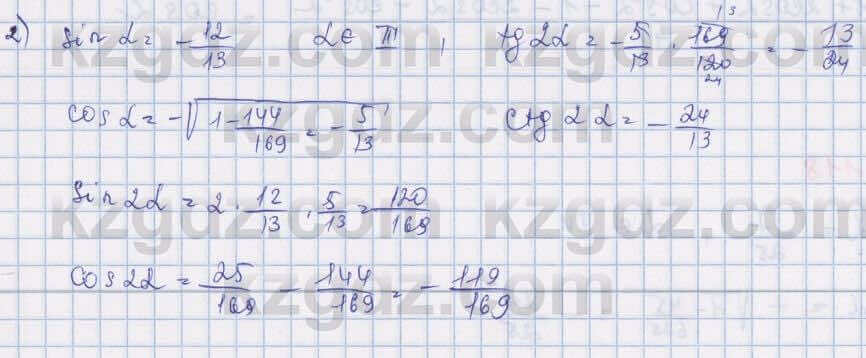 2) sin α = - 12/13   α ∈ III ,   tg 2α = - 5/13 · 169/120 = - 13/24
13
24
cos α = -√(1 - 144/169) = - 5/13   ctg 2α = - 24/13
sin 2α = 2 · 12/13 · 5/13 = 120/169
cos 2α = 25/169 - 144/169 = - 119/169
kzgdz.com kzgdz.com
kzgdz.com kzgdz.com
kzgdz.com kzgdz.com
kzgdz.com